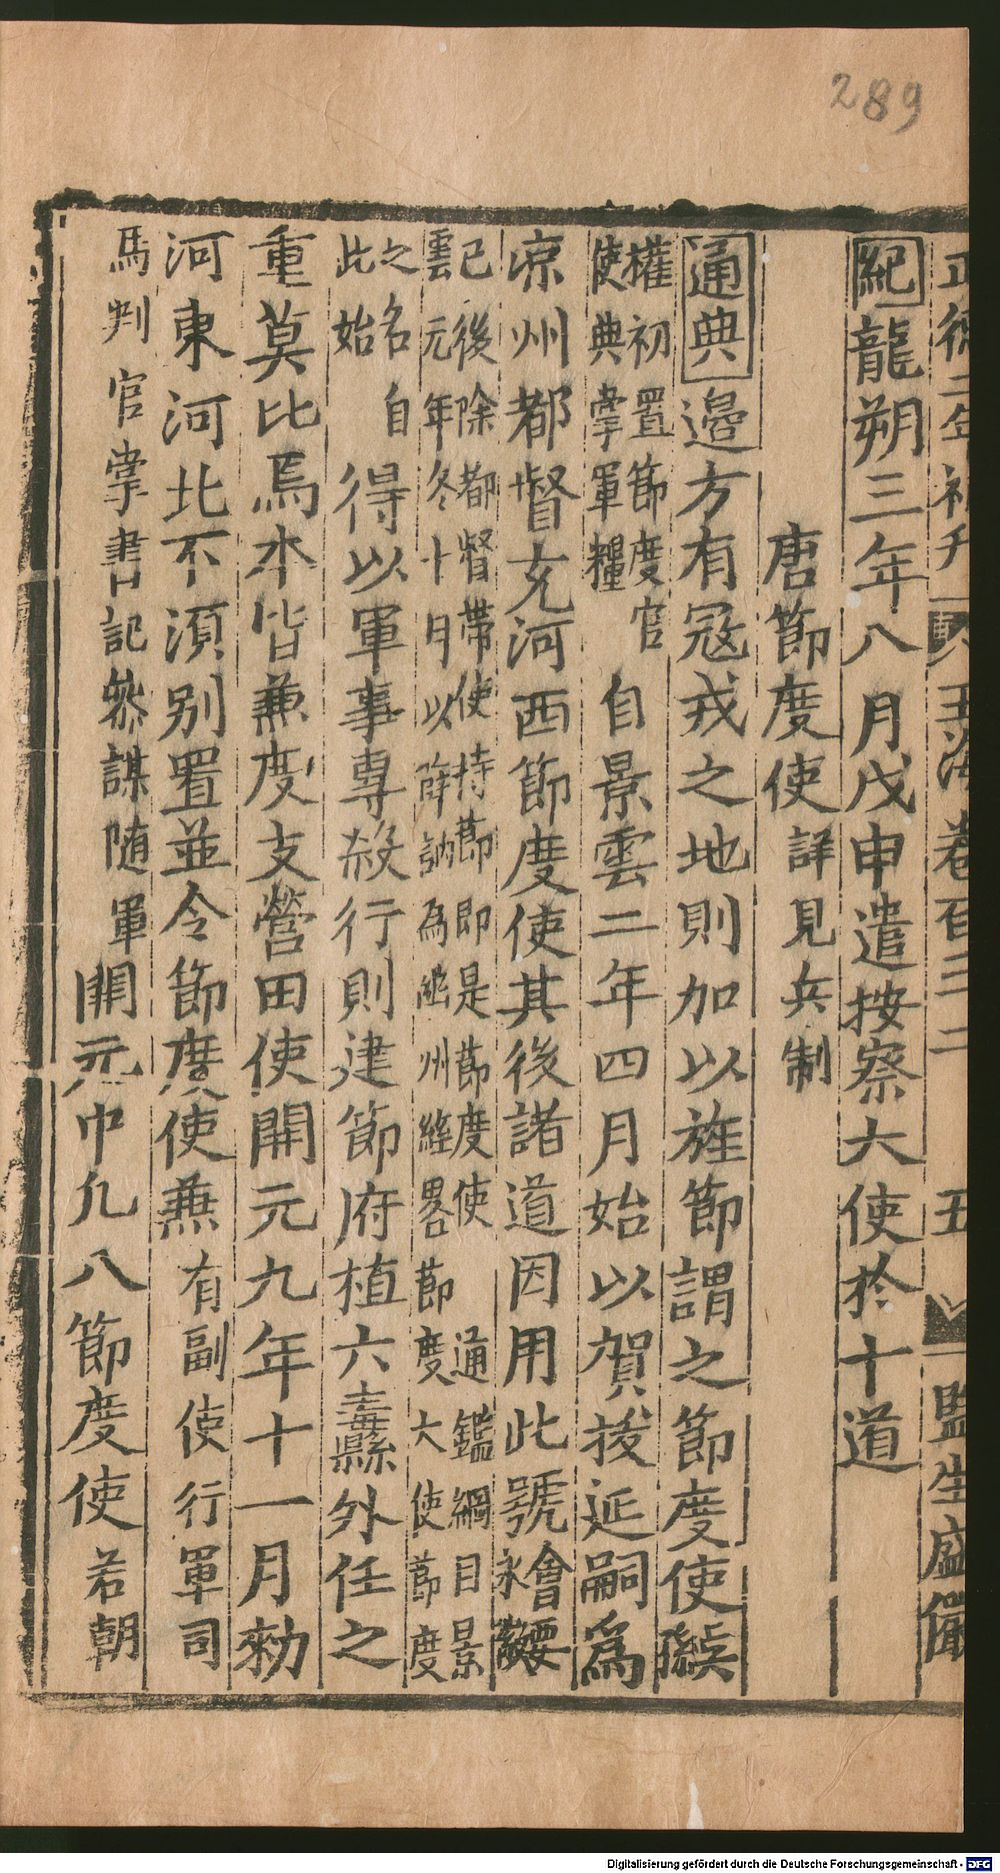 289
正德二年補刋 玉海卷百三二 五 監生盛儼
紀龍朔三年八月戊申遣按察大使於十道
唐節度使詳見兵制
通典邉方有冦戎之地則加以旌節謂之節度使
權初置節度官
使典掌軍糧
自景雲二年四月始以賀拔延嗣爲
凉州都督充河西節度使其後諸道因用此號會要
永徽
已後除都督帶使持節即是節度使 通鑑綱目景
雲元年冬十月以薛訥為幽州經畧節度大使節度
之名自
此始
得以軍事專殺行則建節府植六纛縣外任之
重莫比焉本皆兼度支營田使開元九年十一月勑
河東河北不須别置並令節度使兼有副使行軍司
馬判官掌書記參謀随軍開元中凡八節度使若朝
Digitalisierung gefördert durch die Deutsche Forschungsgemeinschaft - DFG